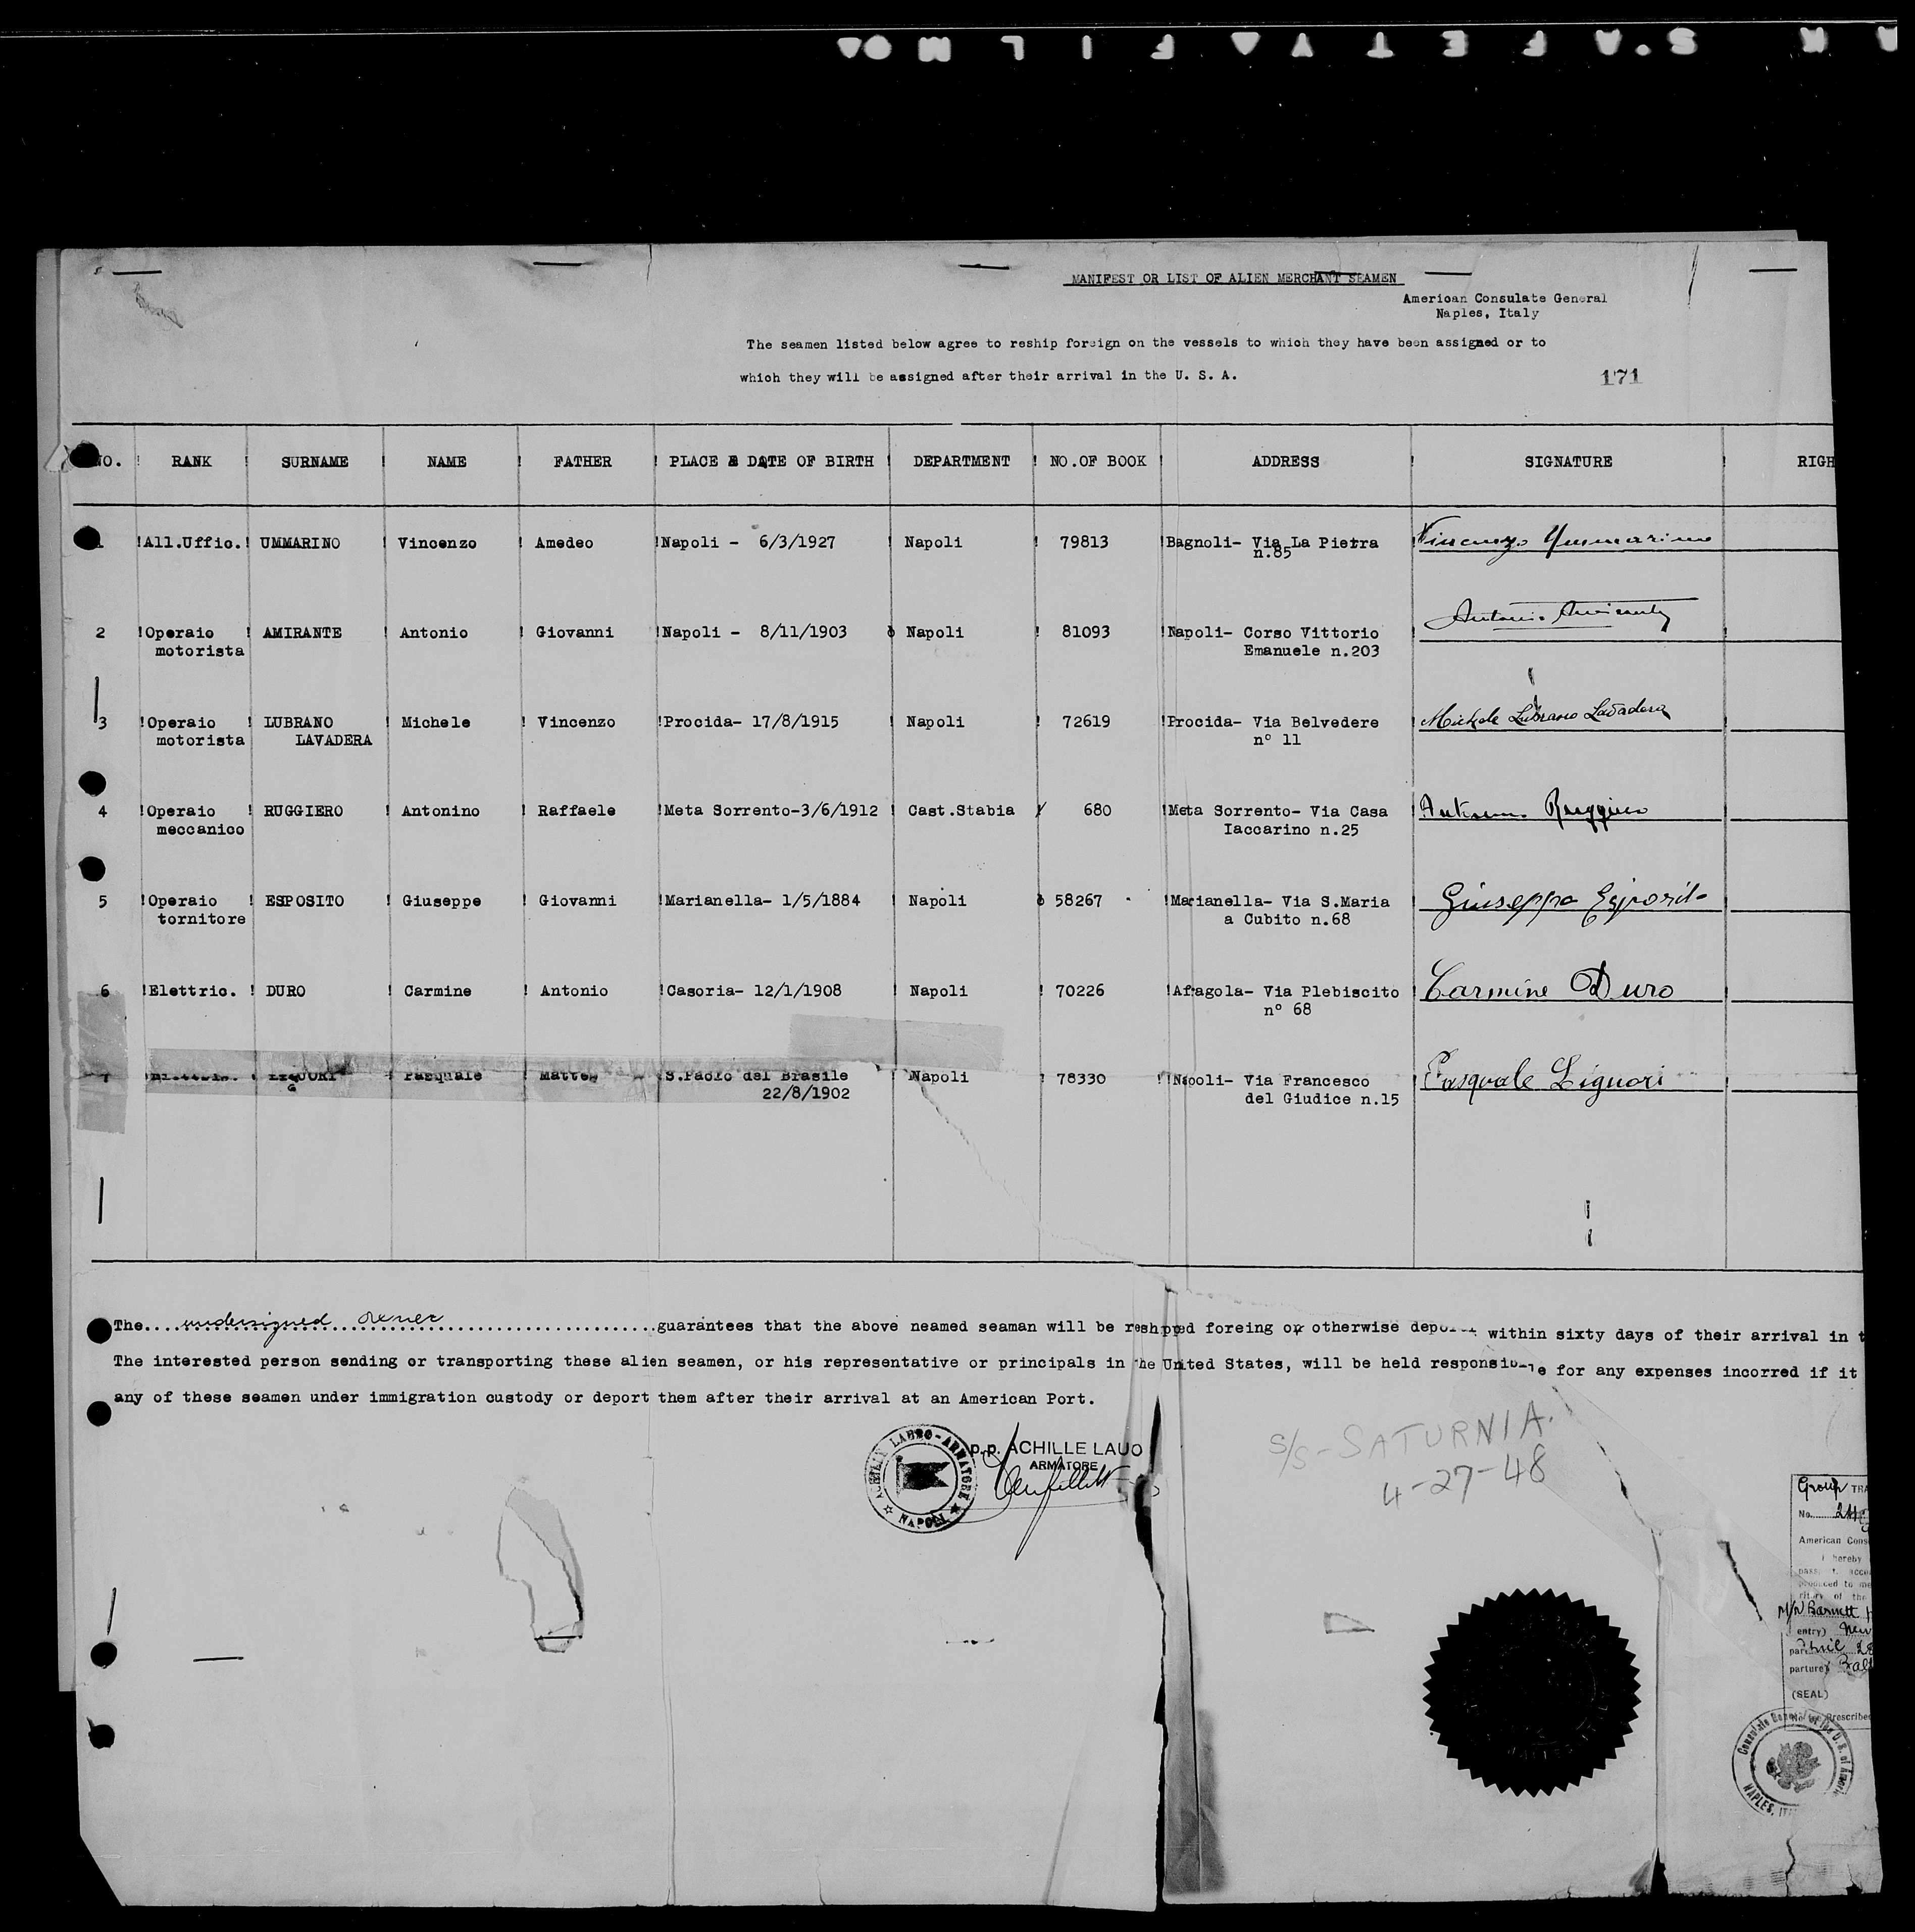 S.A.F.E.T.Y. FILM
MANIFEST OR LIST OF ALIEN MERCHANT SEAMEN
American Consulate General
Naples, Italy
The seamen listed below agree to reship foreign on the vessels to which they have been assigned or to
which they will be assigned after their arrival in the U. S. A.
171
NO. RANK SURNAME NAME FATHER PLACE & DATE OF BIRTH DEPARTMENT NO.OF BOOK ADDRESS SIGNATURE RIGH
1 All.Uffic. UMMARINO Vincenzo Amedeo Napoli - 6/3/1927 Napoli 79813 Bagnoli- Via La Pietra Vincenzo Ummarino
n.85
2 Operaio AMIRANTE Antonio Giovanni Napoli - 8/11/1903 Napoli 81093 Napoli- Corso Vittorio Antonio Amirante
motorista Emanuele n.203
3 Operaio LUBRANO Michele Vincenzo Procida- 17/8/1915 Napoli 72619 Procida- Via Belvedere Michele Lubrano Lavadera
motorista LAVADERA n° 11
4 Operaio RUGGIERO Antonino Raffaele Meta Sorrento-3/6/1912 Cast.Stabia 680 Meta Sorrento- Via Casa Antonino Ruggiero
meccanico Iaccarino n.25
5 Operaio ESPOSITO Giuseppe Giovanni Marianella- 1/5/1884 Napoli 58267 Marianella- Via S.Maria Giuseppe Esposito
tornitore a Cubito n.68
6 Elettric. DURO Carmine Antonio Casoria- 12/1/1908 Napoli 70226 Afragola- Via Plebiscito Carmine Duro
n° 68
7 LIGUORI Pasquale Matteo S.Paolo del Brasile Napoli 78330 Napoli- Via Francesco Pasquale Liguori
G 22/8/1902 del Giudice n.15
The....undersigned owner....guarantees that the above neamed seaman will be reshpped foreing or otherwise depor within sixty days of their arrival in t
The interested person sending or transporting these alien seamen, or his representative or principals in he United States, will be held responsible for any expenses incorred if it
any of these seamen under immigration custody or deport them after their arrival at an American Port.
ACHILLE LAURO-ARMATORE
NAPOLI
p.p. ACHILLE LAUO
ARMATORE
S/S-SATURNIA.
4-27-48
Group TRA
No.
American Cons
I hereby
pass t. acco
produced to me
ritory of the
M/N Barnett H
entry) New
par April 28
parture) Bal
(SEAL)
No fee Prescribed
Consulate General of the U.S. of America
NAPLES, IT